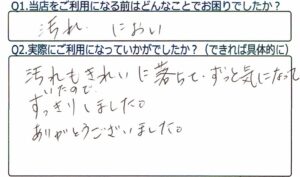 Q1.当店をご利用になる前はどんなことでお困りでしたか？
汚れ、におい
Q2.実際にご利用になっていかがでしたか？（できれば具体的に）
汚れもきれいに落ちて、ずっと気になって
いたので、
すっきりしました。
ありがとうございました。